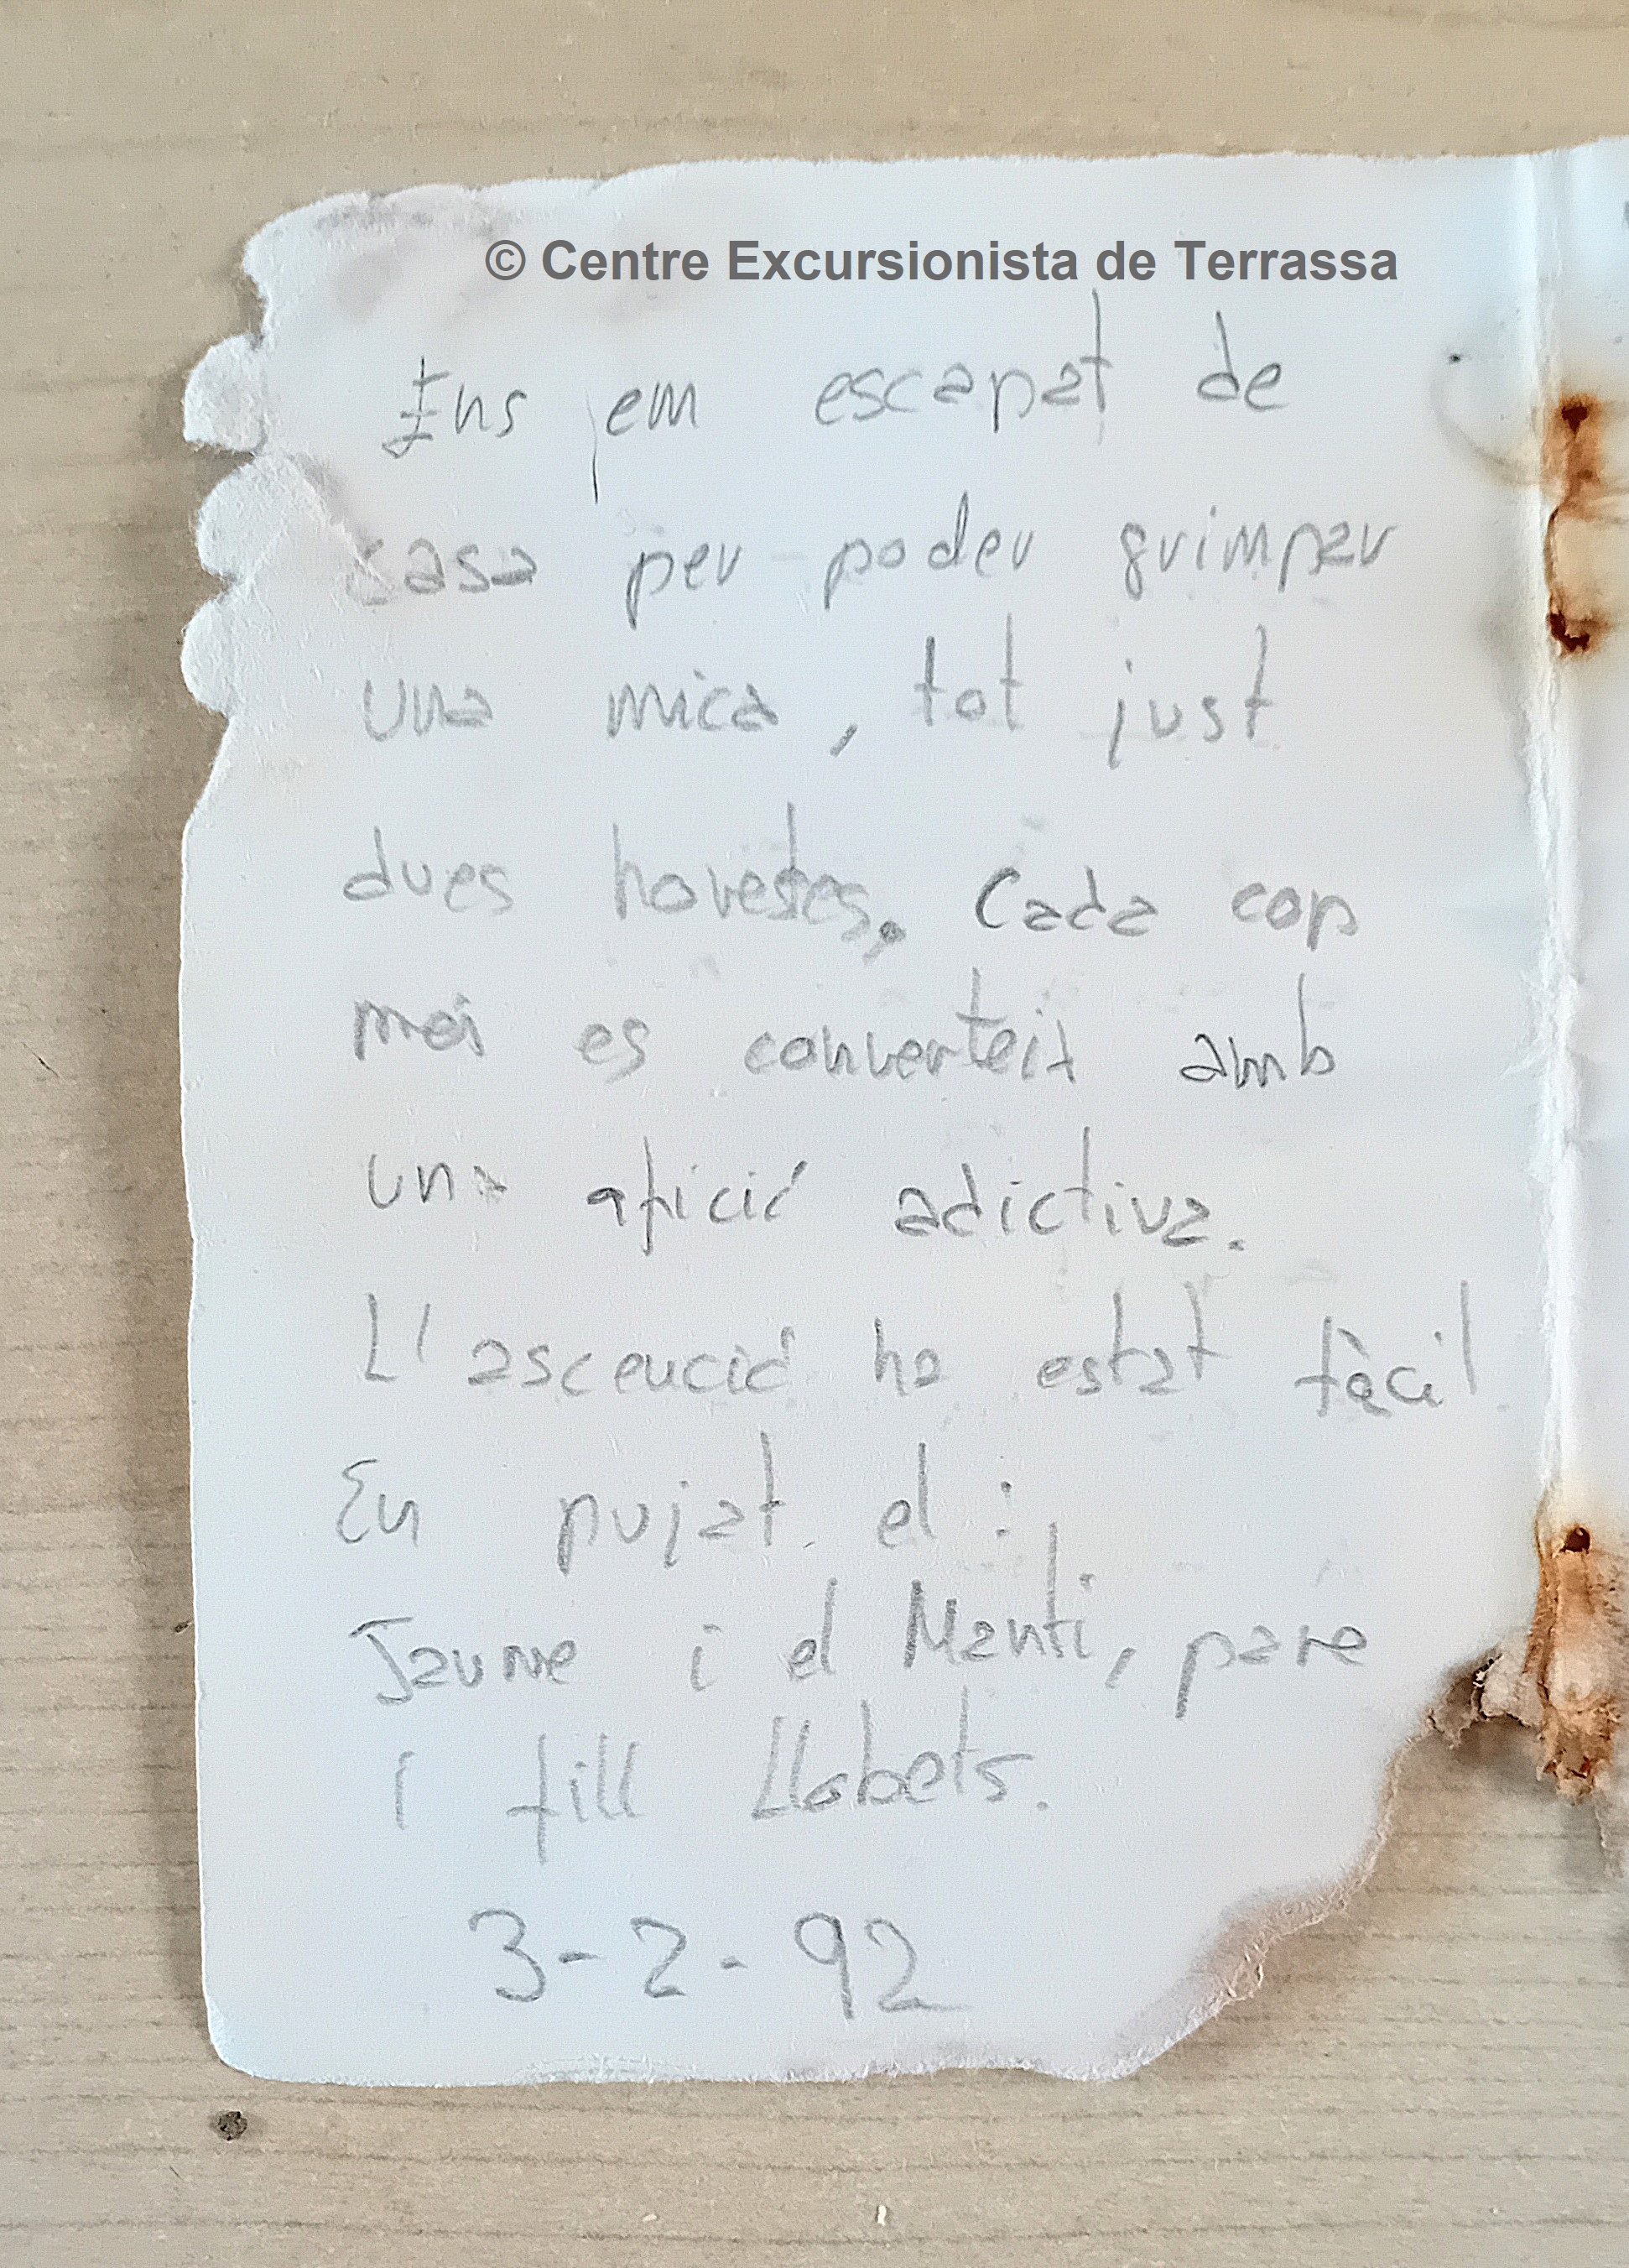 © Centre Excursionista de Terrassa
Ens em escapat de
casa per poder grimpar
una mica, tot just
dues horetes. Cada cop
més es converteix amb
una afició adictiva.
L'ascenció ha estat fàcil
En pujat el:
Jaume i el Manti, pare
i fill Llobets.
3-2-92